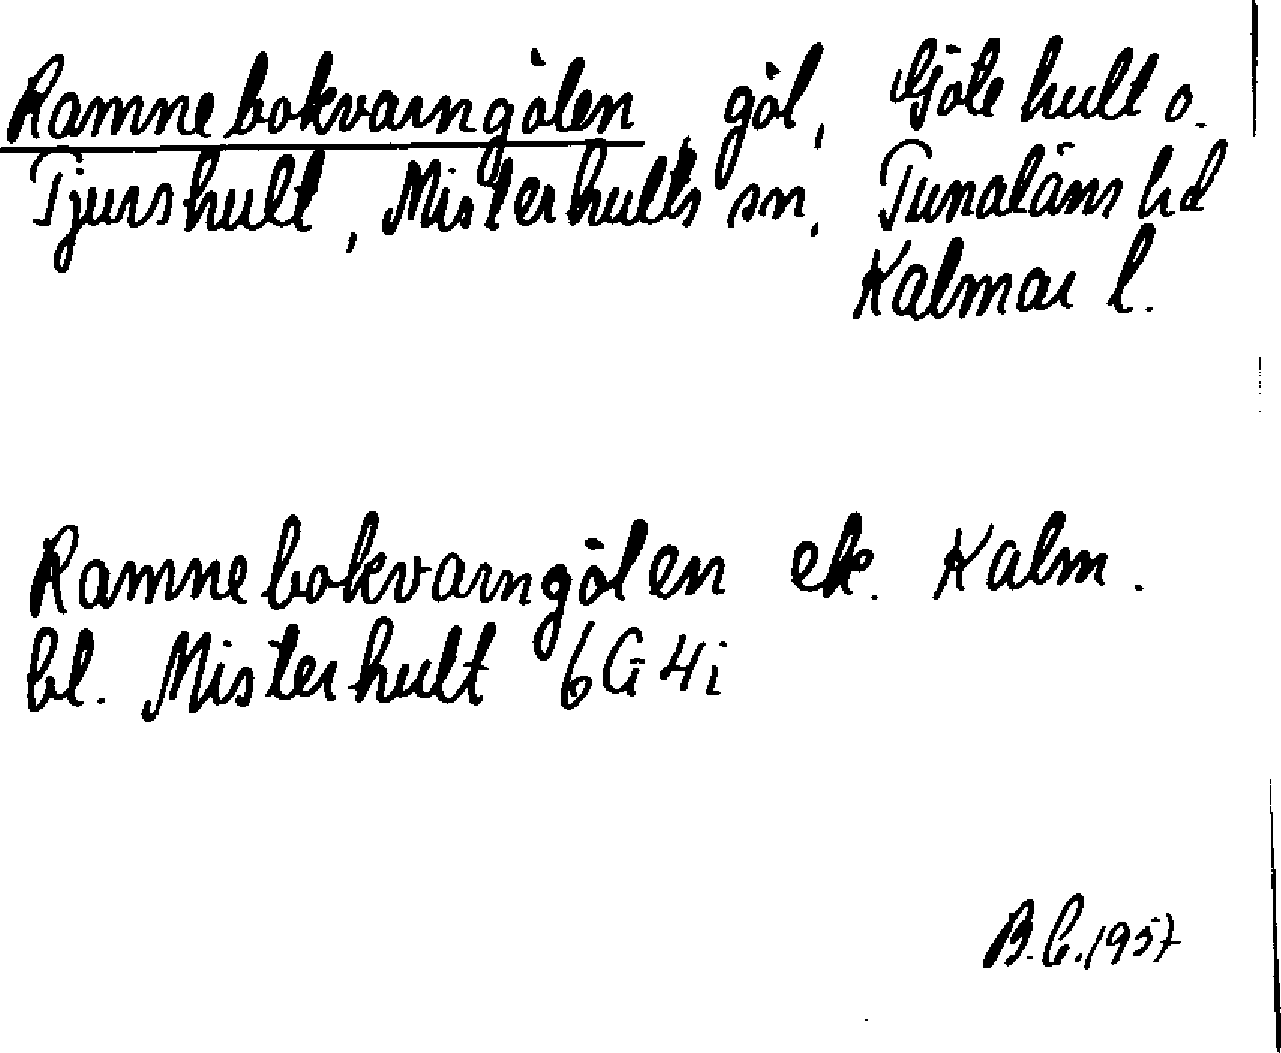 Ramnebokvarngölen, göl, Götehult o.
Tjurshult, Misterhults sn, Tunaläns hd
Kalmar l.
Ramnebokvarngölen ek. Kalm.
bl. Misterhult 6G4i
B.C. 1957